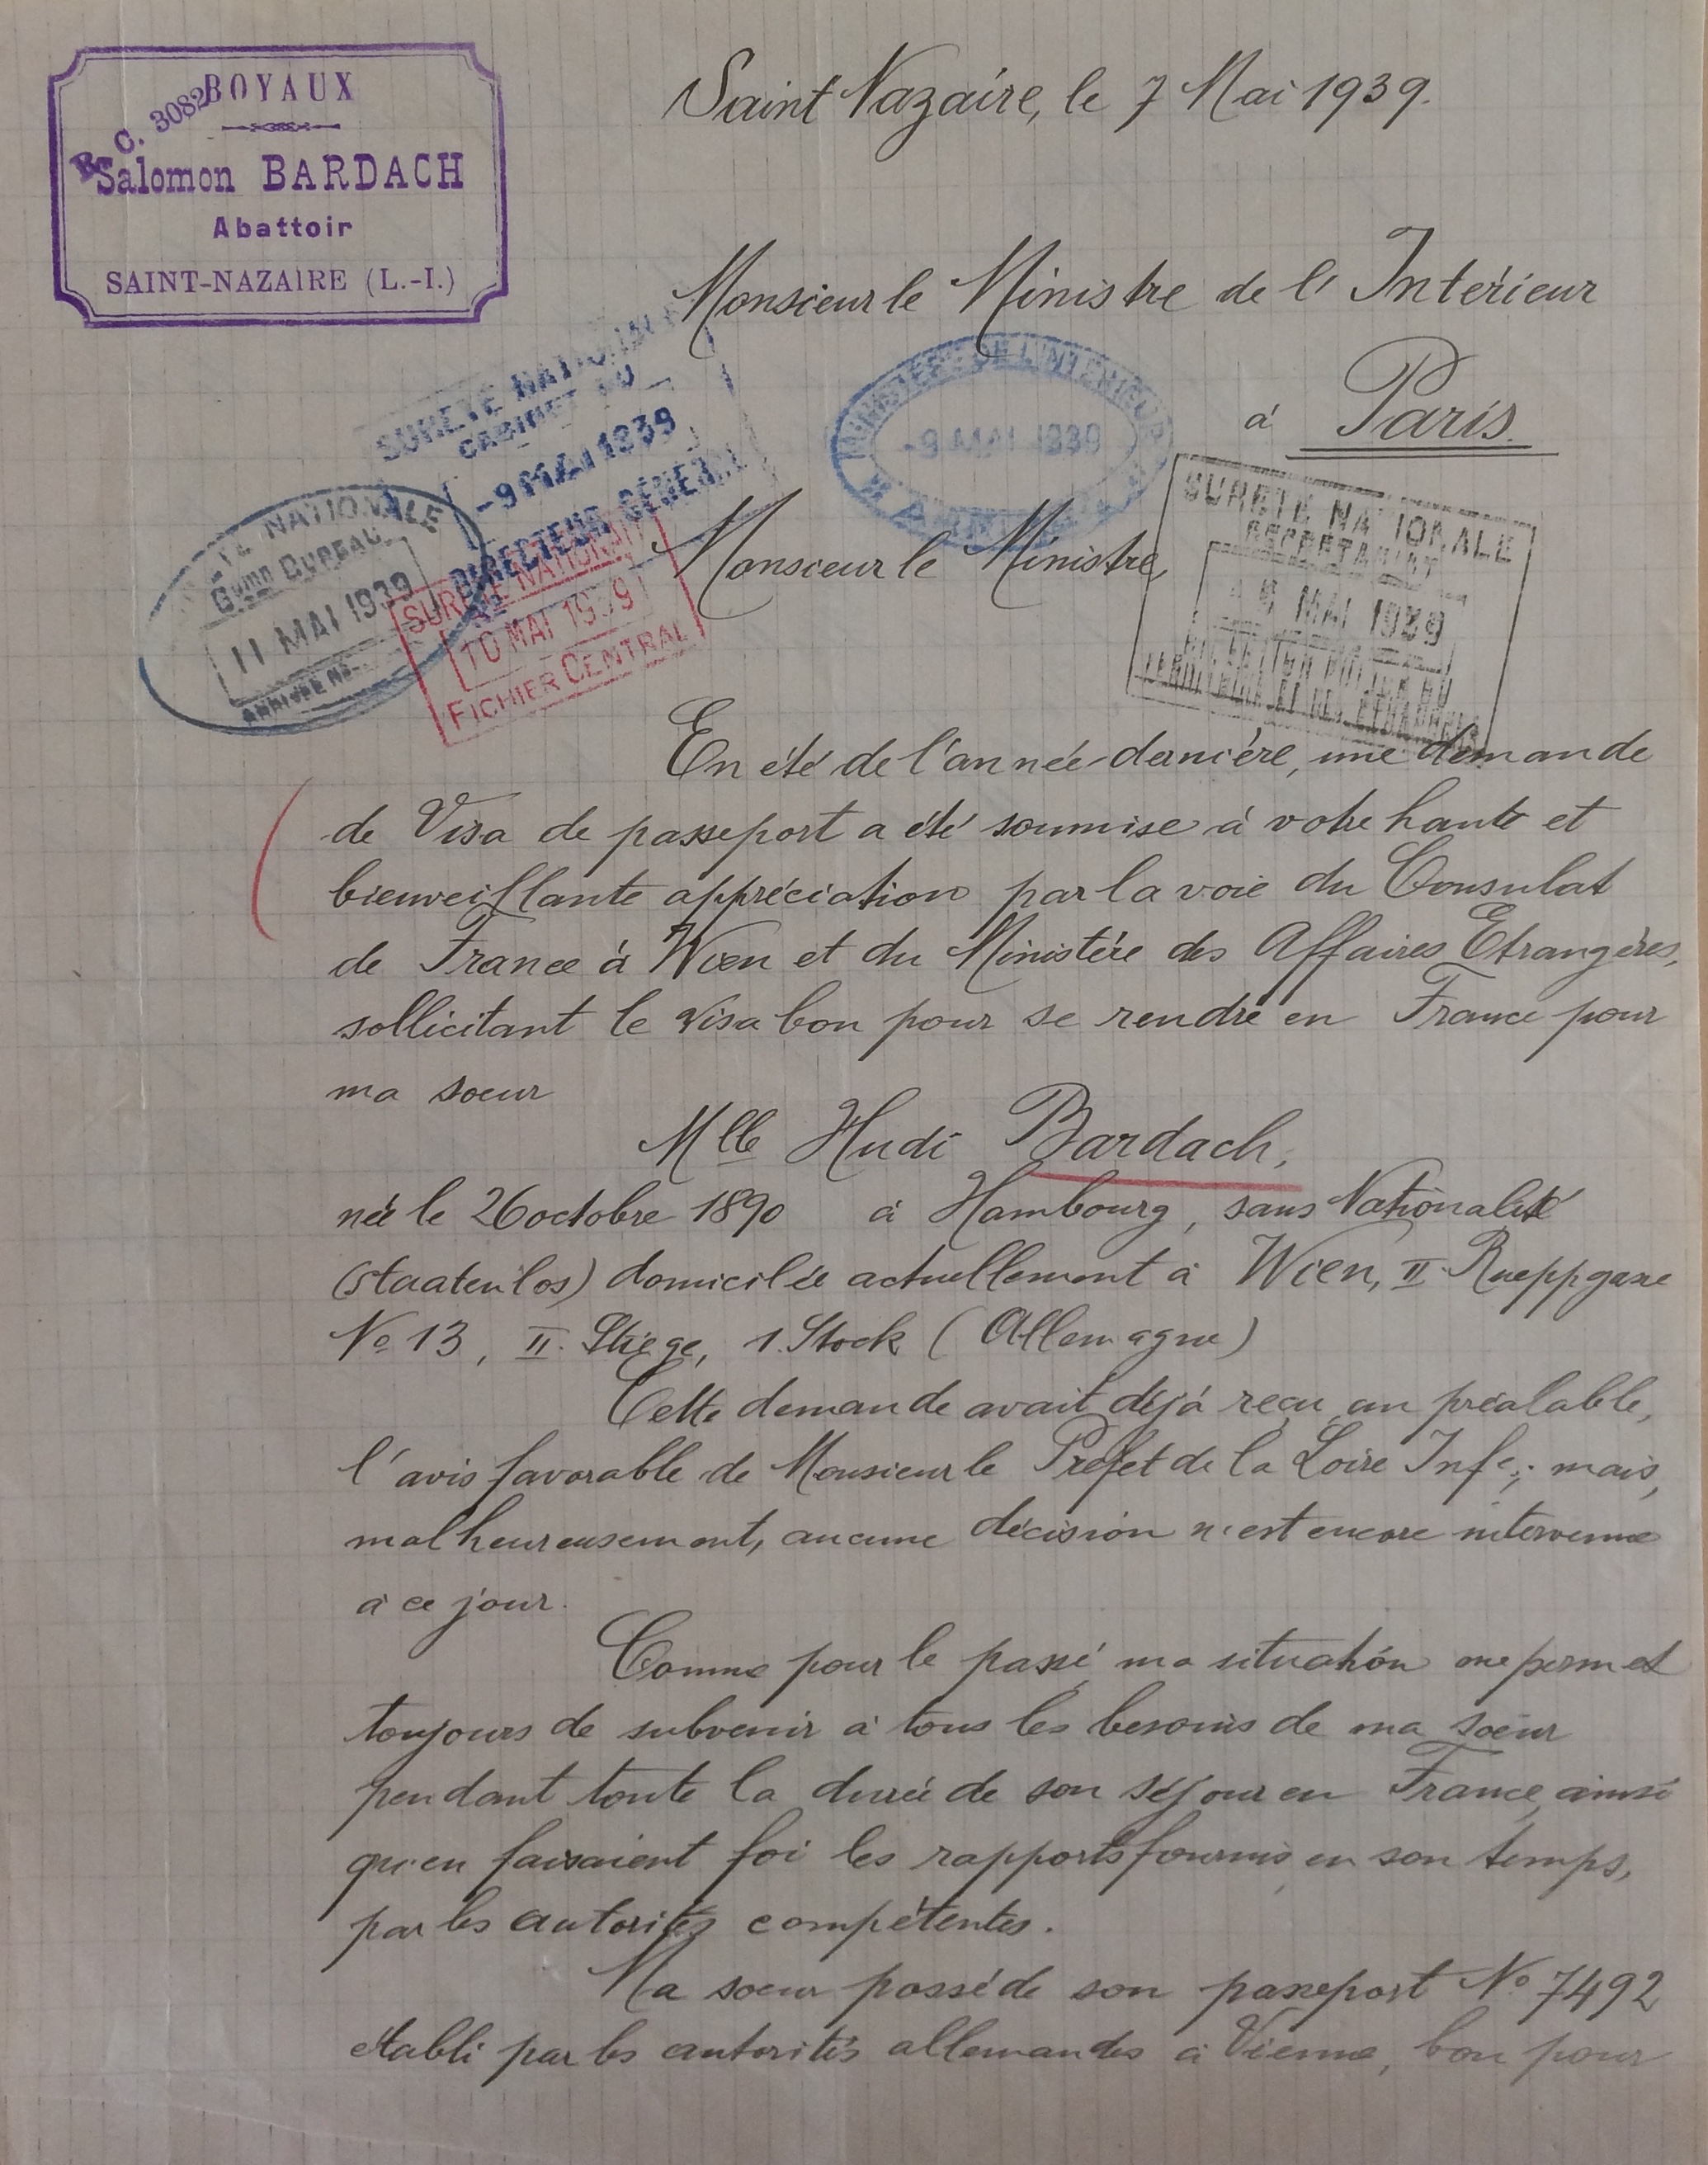 BOYAUX
R. C. 3082
Salomon BARDACH
Abattoir
SAINT-NAZAIRE (L.-I.)
Saint Nazaire, le 7 Mai 1939.
Monsieur le Ministre de l'Intérieur
à Paris
SURETE NATIONALE
CABINET DU
-9 MAI 1939
DIRECTEUR GÉNÉRAL
MINISTERE DE L'INTERIEUR
-9 MAI 1939
SURETE NATIONALE
SECRETARIAT
MAI 1939
NATIONALE
BUREAU
11 MAI 1939
ARRIVEE No
SURETE NATIONALE
10 MAI 1939
FICHIER CENTRAL
Monsieur le Ministre,
En été de l'année dernière, une demande
de Visa de passeport a été soumise à votre haute et
bienveillante appréciation par la voie du Consulat
de France à Wien et du Ministère des Affaires Etrangères,
sollicitant le visa bon pour se rendre en France pour
ma soeur
Mlle Hudi Bardach,
née le 26 octobre 1890 à Hambourg, sans Nationalité
(staatenlos) domiciliée actuellement à Wien, II. Rueppgasse
No 13, II. Stiege, 1. Stock (Allemagne)
Cette demande avait déjà reçu, au préalable,
l'avis favorable de Monsieur le Préfet de la Loire Infe; mais,
malheureusement, aucune décision n'est encore intervenue
à ce jour.
Comme pour le passé, ma situation me permet
toujours de subvenir à tous les besoins de ma soeur
pendant toute la durée de son séjour en France, ainsi
qu'en faisaient foi les rapports fournis, en son temps,
par les autorités compétentes.
Ma soeur possède son passeport No 7492
établi par les autorités allemandes à Vienne, bon pour